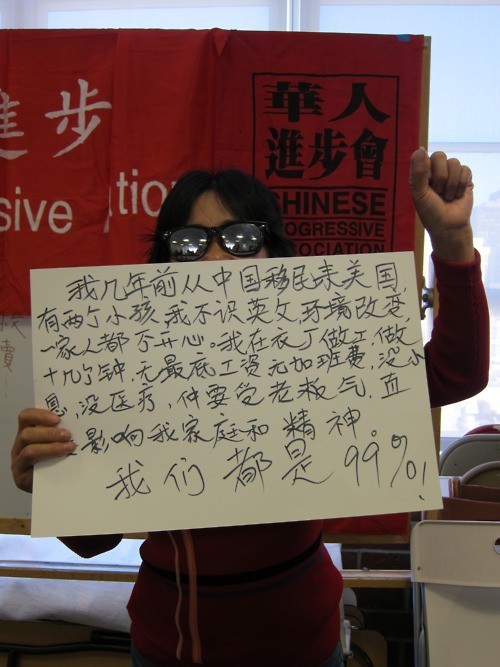 進步
ssive
iation
華人
進步會
CHINESE
OGRESSIVE
SOCIATION
賣
我几年前从中国移民来美国,
有两个小孩,我不识英文,环境改变,
一家人都不开心。我在衣厂做工,做
十几个钟,无最底工资无加班费,没小
息,没医疗,仲要受老板气,直
影响我家庭和精神。
我们都是99%!